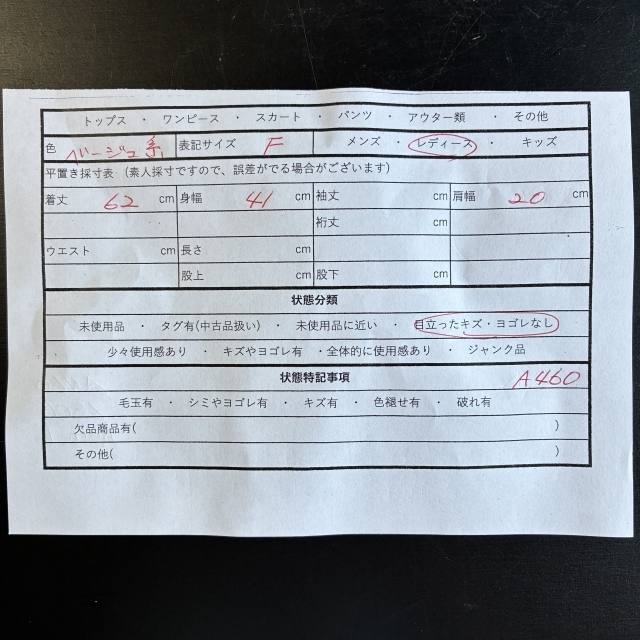 トップス ・ ワンピース ・ スカート ・ パンツ ・ アウター類 ・ その他
色 ベージュ系 表記サイズ F メンズ ・ レディース ・ キッズ
平置き採寸表 （素人採寸ですので、誤差がでる場合がございます）
着丈 62 cm 身幅 41 cm 袖丈 cm 肩幅 20 cm
裄丈 cm
ウエスト cm 長さ cm
股上 cm 股下 cm
状態分類
未使用品 ・ タグ有(中古品扱い) ・ 未使用品に近い ・ 目立ったキズ・ヨゴレなし
少々使用感あり ・ キズやヨゴレ有 ・全体的に使用感あり ・ ジャンク品
状態特記事項 A460
毛玉有 ・ シミやヨゴレ有 ・ キズ有 ・ 色褪せ有 ・ 破れ有
欠品商品有( )
その他( )